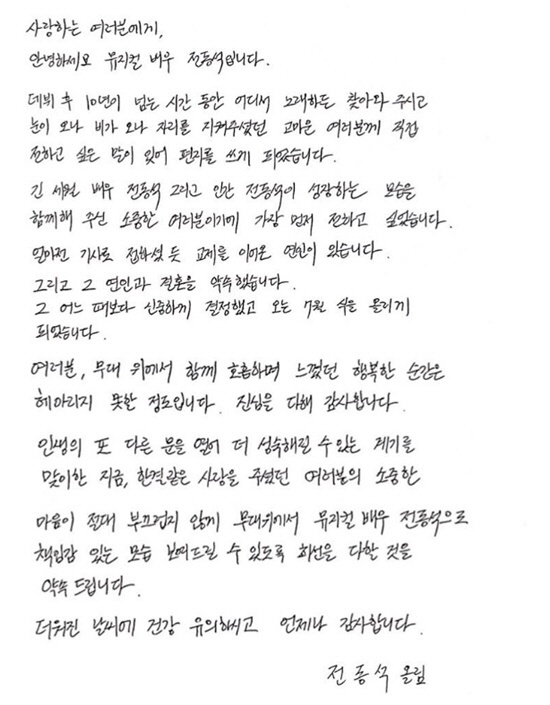 사랑하는 여러분에게,
안녕하세요 뮤지컬 배우 전동석입니다.
데뷔 후 10년이 넘는 시간 동안 어디서 노래하든 찾아와 주시고
눈이 오나 비가 오나 자리를 지켜주셨던 고마운 여러분께 직접
전하고 싶은 말이 있어 편지를 쓰게 되었습니다.
긴 세월 배우 전동석 그리고 인간 전동석이 성장하는 모습을
함께해 주신 소중한 여러분이기에 가장 먼저 전하고 싶었습니다.
얼마전 기사로 접하셨 듯 교제를 이어온 연인이 있습니다.
그리고 그 연인과 결혼을 약속했습니다.
그 어느 때보다 신중하게 결정했고 오는 7월 식을 올리게
되었습니다.
여러분, 무대 위에서 함께 호흡하며 느꼈던 행복한 순간은
헤아리지 못할 정도입니다. 진심을 다해 감사합니다.
인생의 또 다른 문을 열어 더 성숙해질 수 있는 계기를
맞이한 지금, 한결같은 사랑을 주셨던 여러분의 소중한
마음이 절대 부끄럽지 않게 무대위에서 뮤지컬 배우 전동석으로
책임감 있는 모습 보여드릴 수 있도록 최선을 다할 것을
약속 드립니다.
더워진 날씨에 건강 유의하시고 언제나 감사합니다.
전동석 올림